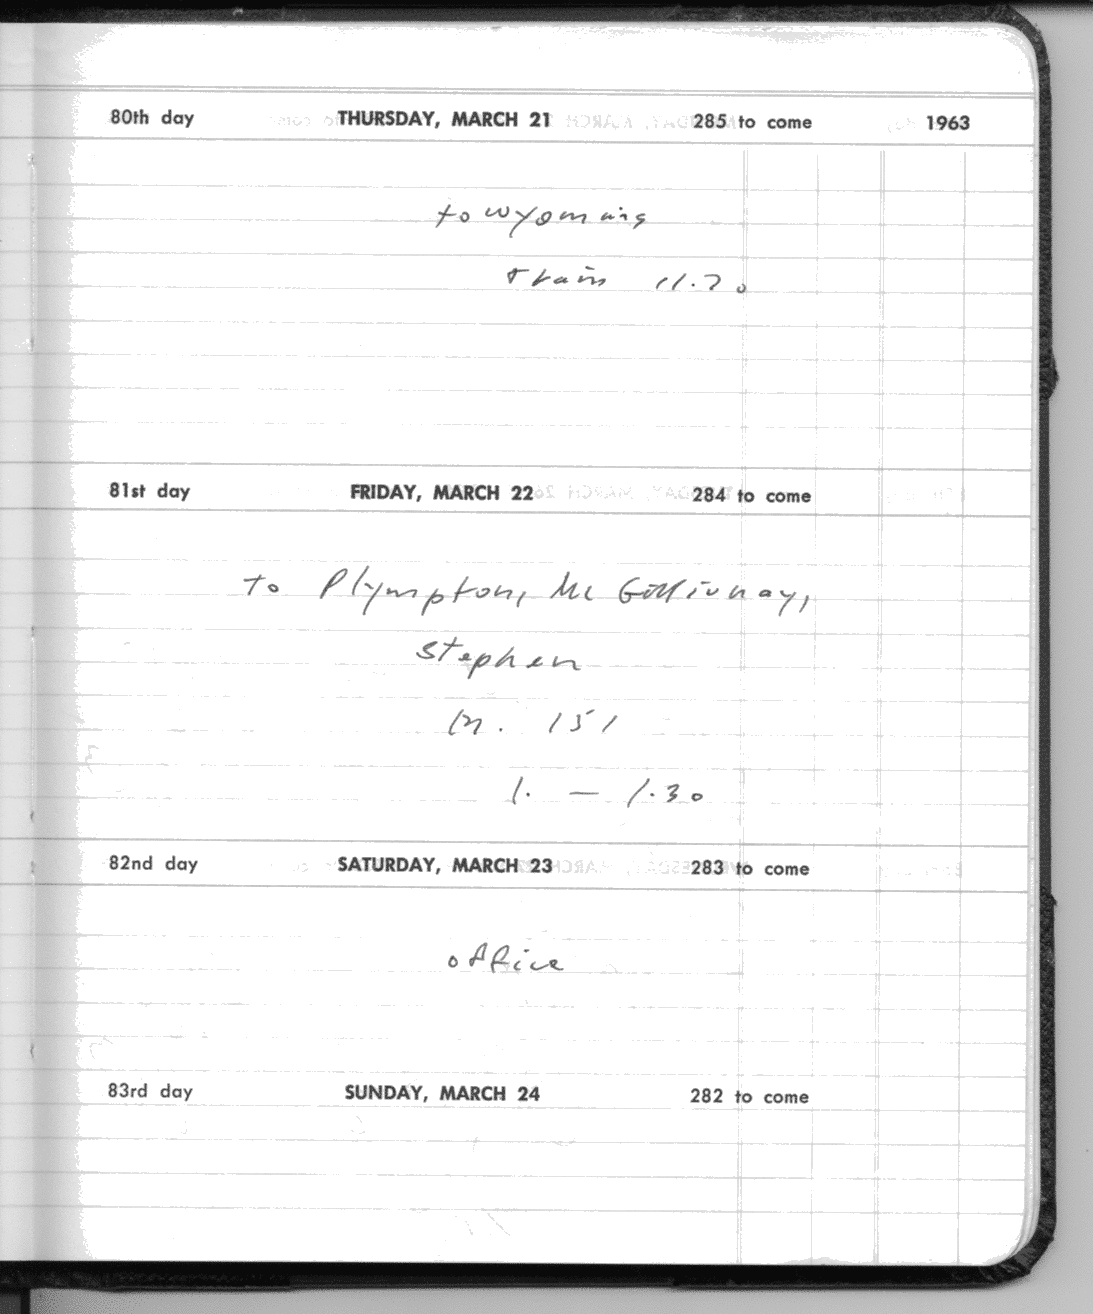 80th day THURSDAY, MARCH 21 285 to come 1963
to Wyoming
train 11.20
81st day FRIDAY, MARCH 22 284 to come
to Plympton, Mc Gillivray,
Stephen
151
1. — 1.30
82nd day SATURDAY, MARCH 23 283 to come
office
83rd day SUNDAY, MARCH 24 282 to come